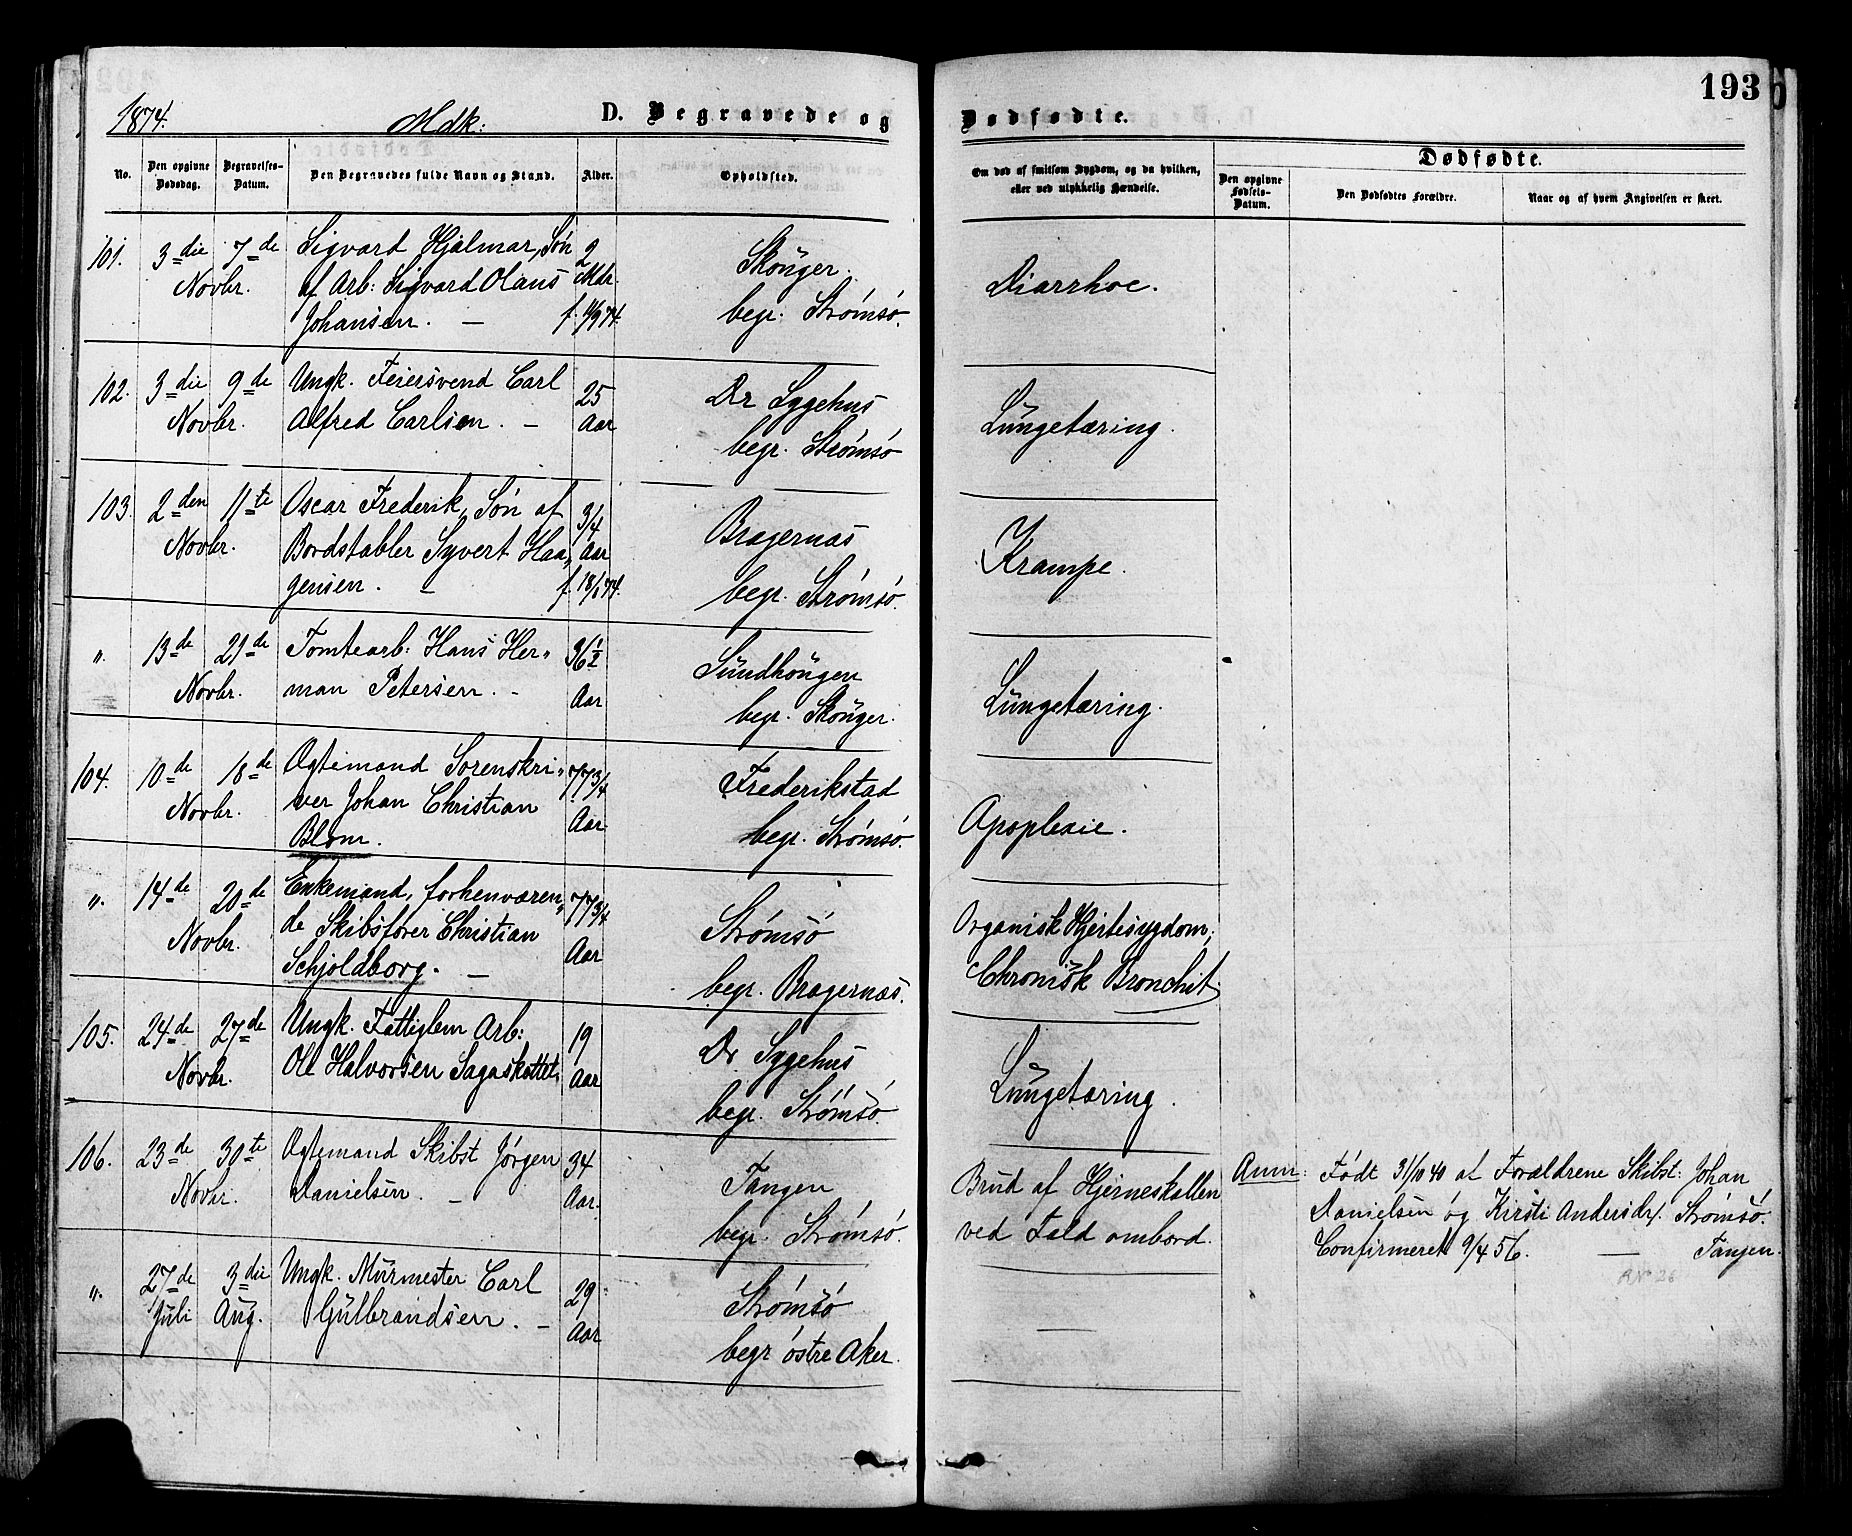 193
1874.
Mdk:
D. Begravede og
Dødfødte.
No.
Den opgivne
Dødsdag.
Begravelses-
Datum.
Den Begravedes fulde Navn og Stand.
Alder.
Opholdsted.
Om død af smitsom Sygdom, og da hvilken,
eller ved ulykkelig Hændelse.
Dødfødte.
Den opgivne
Fødsels-
Datum.
Den Dødfødtes Forældre.
Naar og af hvem Angivelsen er skeet.
101. 3die 7de Sigvard Hjalmar, Søn 2 Skouger. Diarrhoe.
Novbr. af Arb: Sigvard Olaus Mdr.
Johansen. — f. 11/9 74. begr. Strømsø.
102. 3die 9de Ungk. Feiersvend Carl 25 Dr Sygehus Lungetæring.
Novbr. Alfred Carlsen. — Aar
begr. Strømsø
103. 2den 11te Oscar Frederik, Søn af 3/4 Bragernæs Krampe.
Novbr. Bordstabler Syvert Haa- Aar
gensen. — f. 18/1 74. begr. Strømsø.
". 13de 21de Tomtearb: Hans Her- 36 1/2 Sundhougen Lungetæring.
Novbr. man Petersen. - Aar
begr. Skouger.
104. 10de 18de Ogtemand Sorenskri- 77 3/4 Frederikstad Apoplexie.
Novbr. ver Johan Christian Aar
Blom. begr. Strømsø.
". 14de 20de Enkemand, forhenværen- 77 3/4 Strømsø Organisk Hjertesygdom;
Novbr. de Skibsfører Christian Aar Chronisk Bronchit.
Schjoldborg. — begr. Bragernæs.
105. 24de 27de Ungk. Fattiglem Arb: 19 Dr. Sygehus Lungetæring.
Novbr. Ole Halvorsen Sagaskottet. Aar
begr. Strømsø.
106. 23de 30te Ogtemand Skibst Jørgen 34 Tangen Brud af Hjerneskallen Anm: Født 31/10 40 af Forældrene Skibst: Johan
Novbr. Danielsen. — Aar. begr. Strømsø. ved Fald ombord. Danielsen og Kirsti Andersdr. Strømsø.
Confirmeret 9/4 56. — Tangen.
". 27de 3die Ungk. Murmester Carl 29 Strømsø —
Juli Aug. Gulbrandsen. — Aar
begr østre Aker.